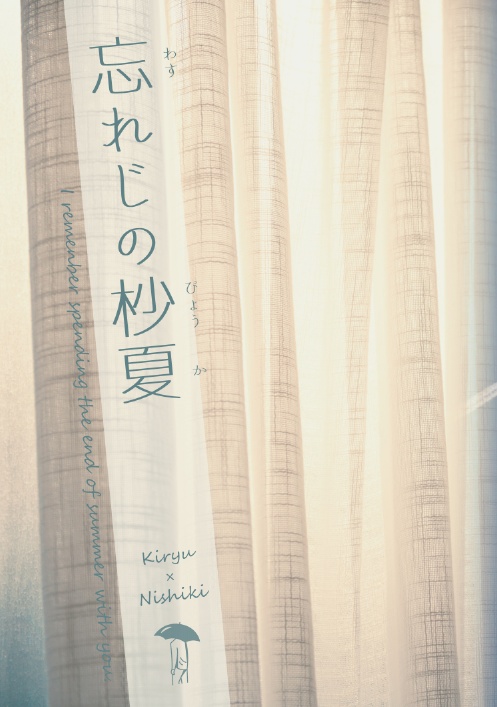 忘れじの杪夏
わす
びょう
か
I remember spending the end of summer with you.
Kiryu
×
Nishiki